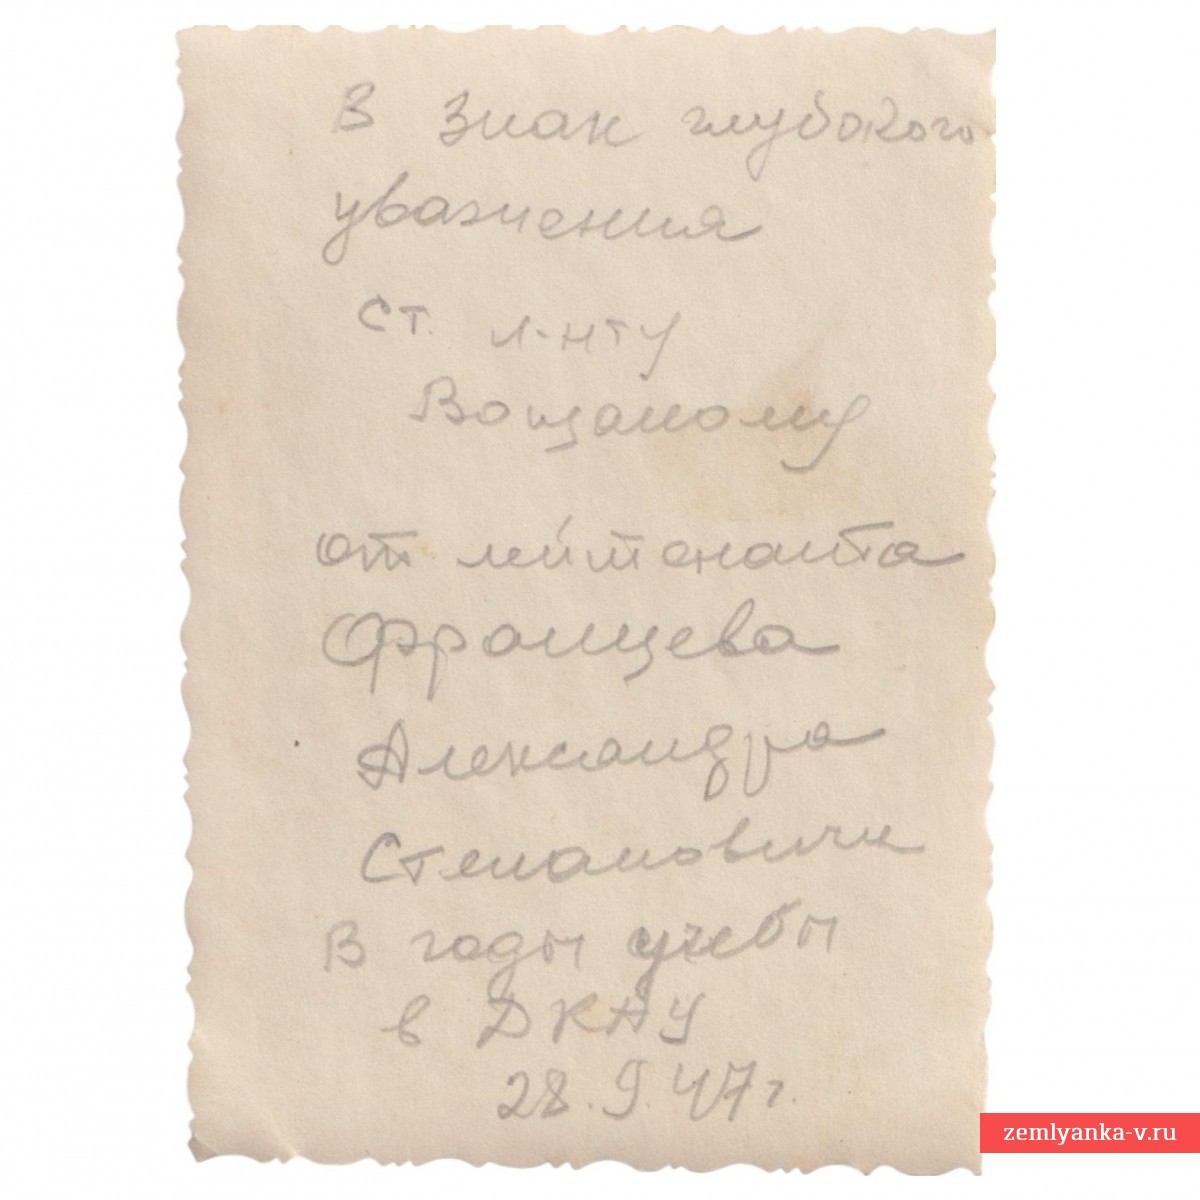 В знак глубокого
уважения
ст. л-нту
Вощаному
от лейтенанта
Францева
Александра
Степановича
В годы учебы
в ДКАУ
28.9.47 г.
zemlyanka-v.ru